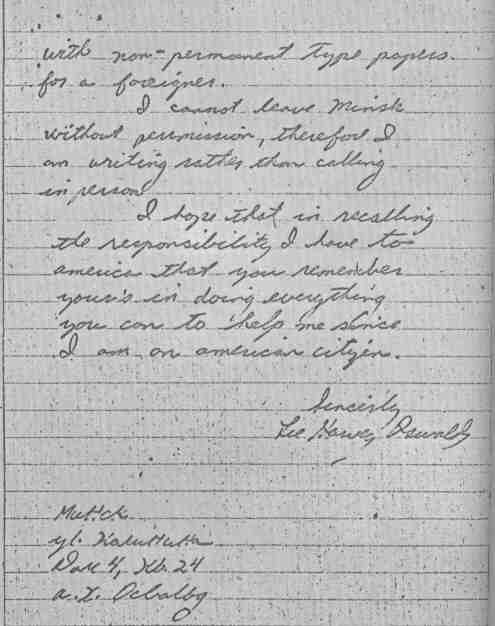 with non-permanent type papers
for a foreigner.
I cannot leave Minsk
without permission, therefore I
am writing rather than calling
in person
I hope that in recalling
the responsibility I have to
america that you remember
your's in doing everything
you can to help me since
I am an american citizen.
Sincerly
Lee Harvey Oswald
Минск
ул. Калинина
Дом 4, Кв. 24